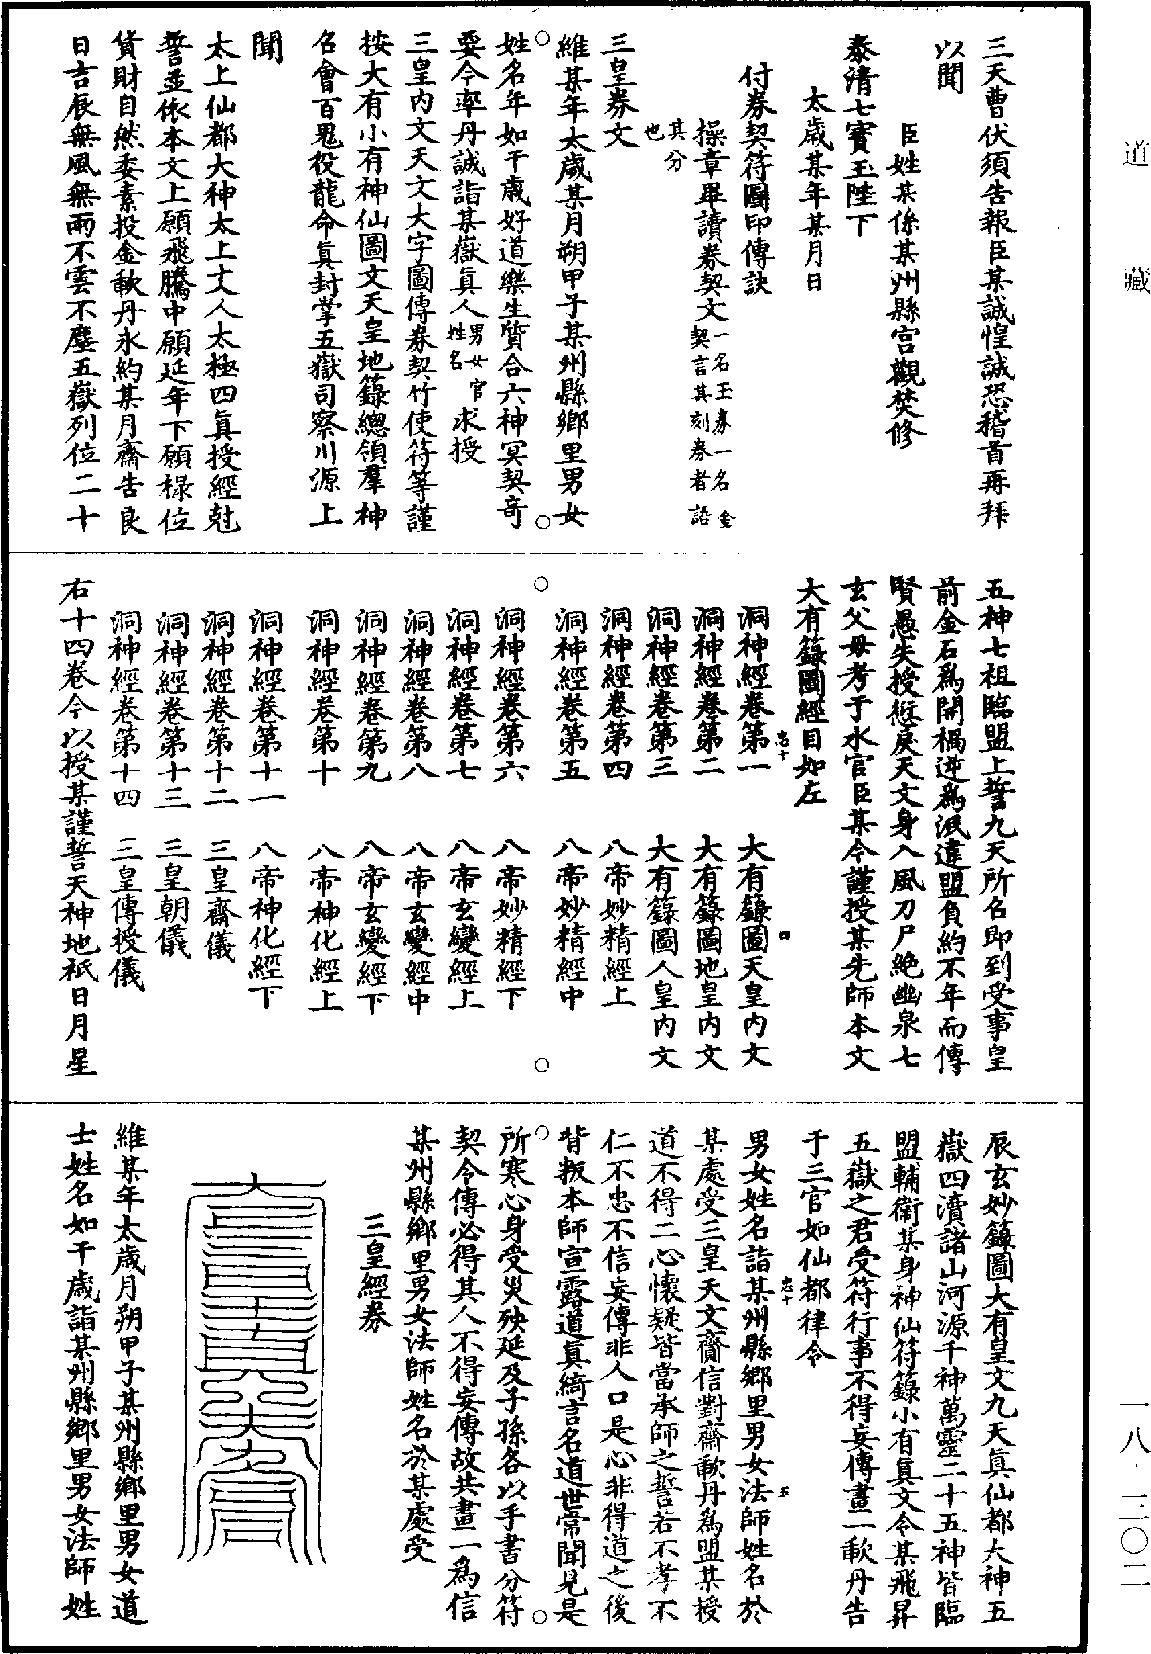 道藏
三天曹伏須告報臣某誠惶誠恐稽首再拜
以聞
臣姓某係某州縣宮觀焚修
泰清七寶玉陛下
太歲某年某月日
付券契符圖印傳訣
操章畢讀券契文一名玉券一名金契言其刻券者語其分也
三皇券文
維某年太歲某月朔甲子某州縣鄉里男女
姓名年如干歲好道樂生質合六神冥契奇
要今率丹誠詣某嶽真人男女官姓名求授
三皇內文天文大字圖傳券契竹使符等謹
按大有小有神仙圖文天皇地籙總領羣神
名會百鬼役龍命真封掌五嶽司察川源上
聞
太上仙都大神太上丈人太極四真授經尅
誓並依本文上願飛騰中願延年下願祿位
貨財自然委素投金歃丹永約某月齋告良
日吉辰無風無雨不雲不塵五嶽列位二十
五神七祖臨盟上誓九天所名即到受事皇
前金石為開禍逆為泯違盟負約不年而傳
賢愚失授衒戾天文身入風刀尸絕幽泉七
玄父母考于水官臣某今謹授某先師本文
大有籙圖經目如左
洞神經卷第一 大有籙圖天皇內文
洞神經卷第二 大有籙圖地皇內文
洞神經卷第三 大有籙圖人皇內文
洞神經卷第四 八帝妙精經上
洞神經卷第五 八帝妙精經中
洞神經卷第六 八帝妙精經下
洞神經卷第七 八帝玄變經上
洞神經卷第八 八帝玄變經中
洞神經卷第九 八帝玄變經下
洞神經卷第十 八帝神化經上
洞神經卷第十一 八帝神化經下
洞神經卷第十二 三皇齋儀
洞神經卷第十三 三皇朝儀
洞神經卷第十四 三皇傳授儀
右十四卷今以授某謹誓天神地祇日月星
辰玄妙籙圖大有皇文九天真仙都大神五
嶽四瀆諸山河源千神萬靈二十五神皆臨
盟輔衛某身神仙符錄小有真文令某飛昇
五嶽之君受符行事不得妄傳畫一歃丹告
于三官如仙都律令
男女姓名詣某州縣鄉里男女法師姓名於
某處受三皇天文齎信對齋歃丹為盟某授
道不得二心懷疑皆當承師之誓若不孝不
仁不忠不信妄傳非人口是心非得道之後
背叛本師宣露道真綺言名道世常聞見是
所寒心身受災殃延及子孫各以手書分符
契令傳必得其人不得妄傳故共畫一為信
某州縣鄉里男女法師姓名於某處受
三皇經券
維某年太歲月朔甲子某州縣鄉里男女道
士姓名如干歲詣某州縣鄉里男女法師姓
一八·三〇二